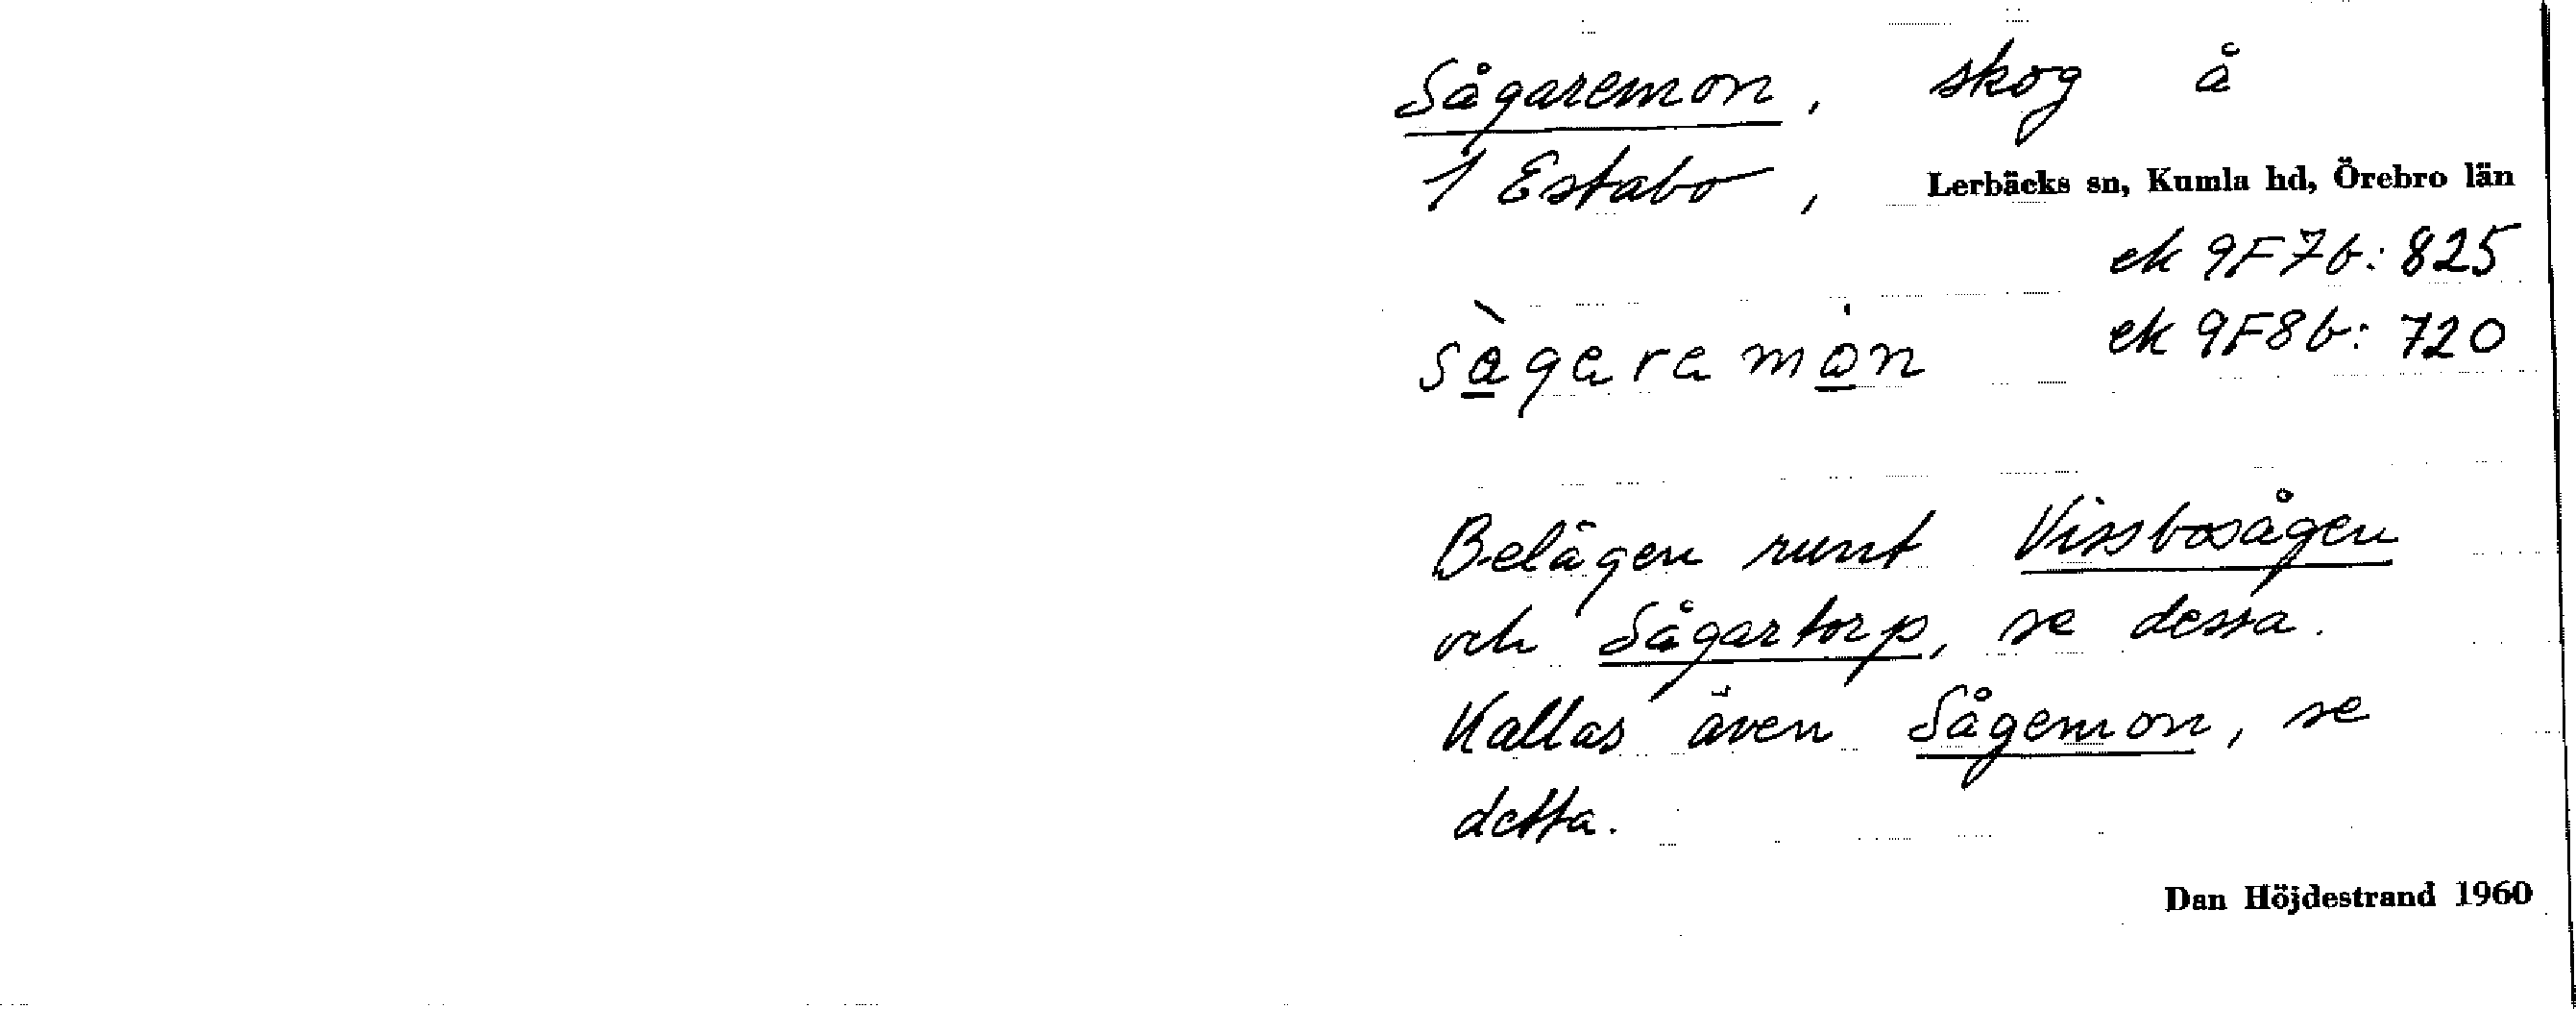 Sågaremon, skog å
1 Estabo, Lerbäcks sn, Kumla hd, Örebro län
ek 9F7b: 825
sàgaramon ek 9F8b: 720
Belägen runt Vissbosågen
och Sågartorp, se dessa.
Kallas även Sågemon, se
detta.
Dan Höjdestrand 1960